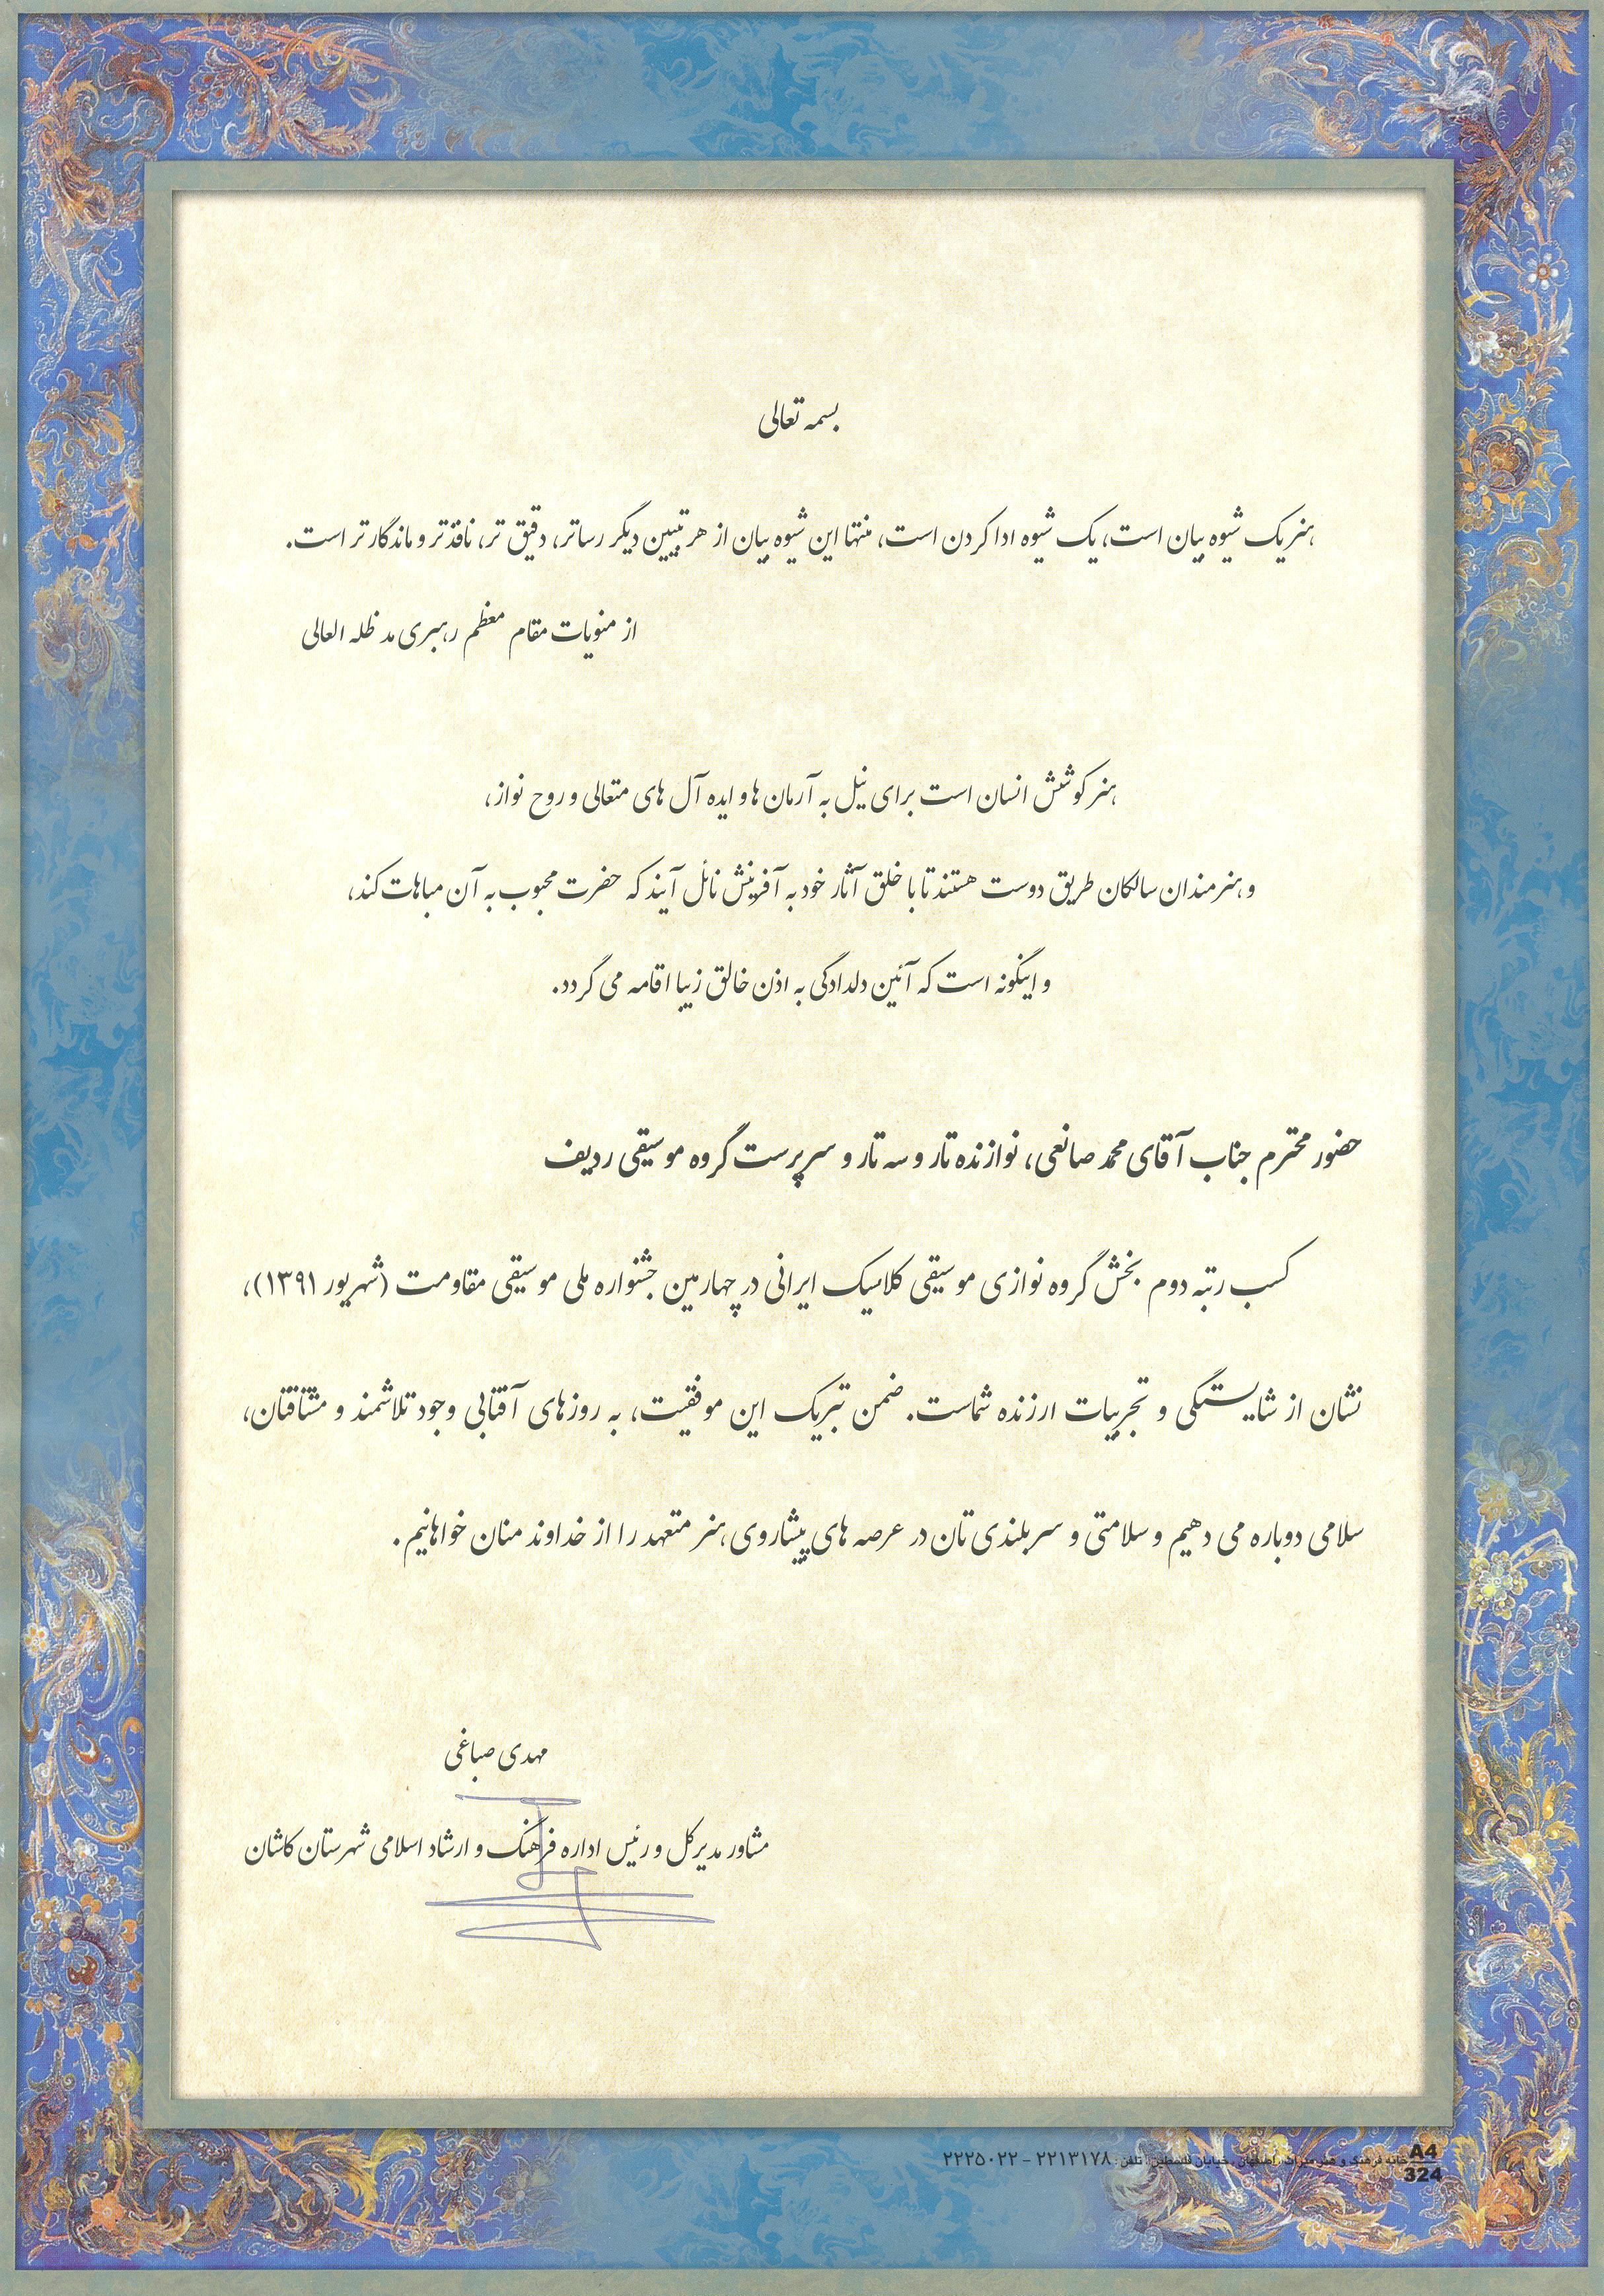 بسمه تعالی
هنر یک شیوه بیان است، یک شیوه ادا کردن است، منتها این شیوه بیان از هر تبیین دیگر رساتر، دقیق تر، نافذتر و ماندگارتر است.
از منویات مقام معظم رهبری مد ظله العالی
هنر کوشش انسان است برای نیل به آرمان ها و ایده آل های متعالی و روح نواز،
و هنرمندان سالکان طریق دوست هستند تا با خلق آثار خود به آفرینش نائل آیند که حضرت محبوب به آن مباهات کند،
و اینگونه است که آئین دلدادگی به اذن خالق زیبا اقامه می گردد.
حضور محترم جناب آقای محمد صانعی، نوازنده تار و سه تار و سرپرست گروه موسیقی ردیف
کسب رتبه دوم بخش گروه نوازی موسیقی کلاسیک ایرانی در چهارمین جشنواره ملی موسیقی مقاومت (شهریور ۱۳۹۱)،
نشان از شایستگی و تجربیات ارزنده شماست. ضمن تبریک این موفقیت، به روزهای آفتابی وجود تلاشمند و مشتاقتان،
سلامی دوباره می دهیم و سلامتی و سربلندی تان در عرصه های پیشاروی هنر متعهد را از خداوند منان خواهانیم.
مهدی صباغی
مشاور مدیرکل و رئیس اداره فرهنگ و ارشاد اسلامی شهرستان کاشان
A4
324
خانه فرهنگ و هنر میراث، اصفهان، خیابان فلسطین، تلفن: ۲۲۱۳۱۷۸ - ۲۲۲۵۰۲۲